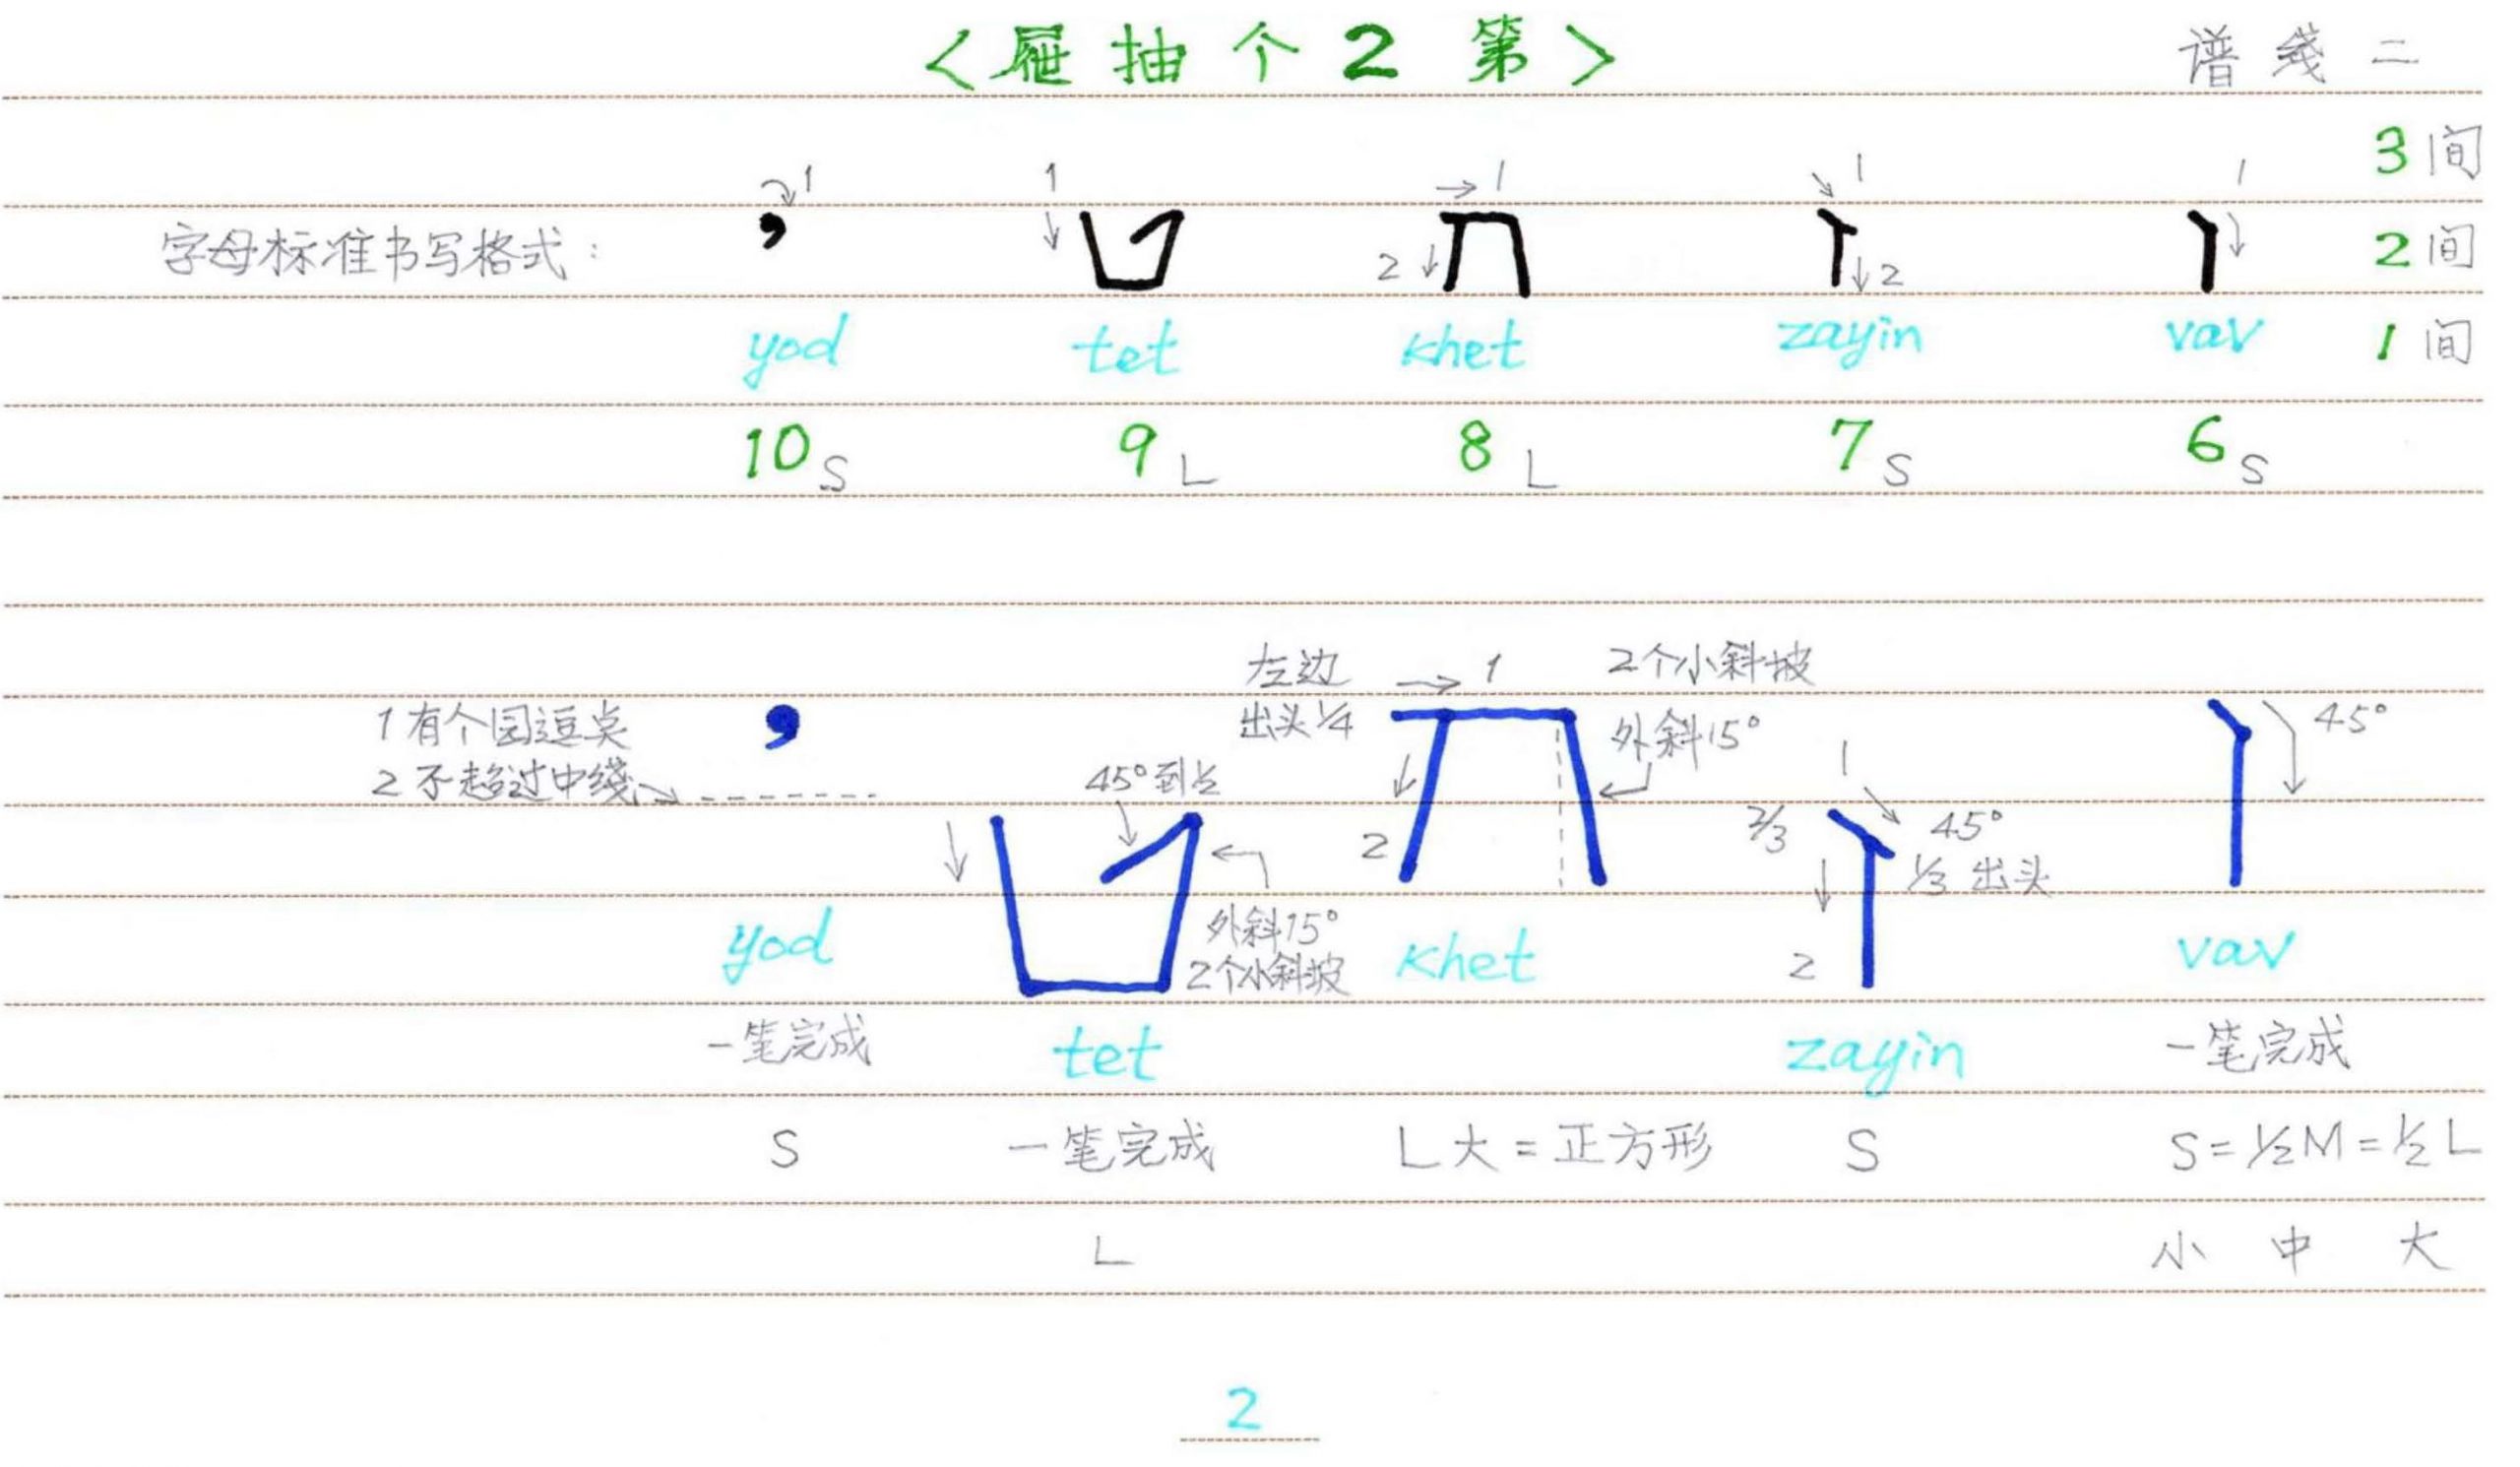 ＜屉抽个2第＞ 谱线二
3间
1 1 1 1 1
字母标准书写格式： 2 2 2间
yod tet khet zayin vav 1间
10 S 9 L 8 L 7 S 6 S
左边 1 2个小斜坡
1有个园逗点 出头¼ 外斜15° 45°
2不超过中线 45°到½ 1
2 ⅔ 45°
⅓出头
yod 外斜15° khet vav
2个小斜坡 2
一笔完成 tet zayin 一笔完成
S 一笔完成 L大=正方形 S S=½M=½L
L 小 中 大
2